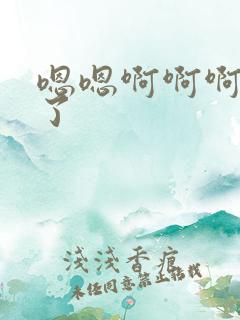 嗯嗯啊啊啊
了
淺淺香痕
未经同意禁止转载